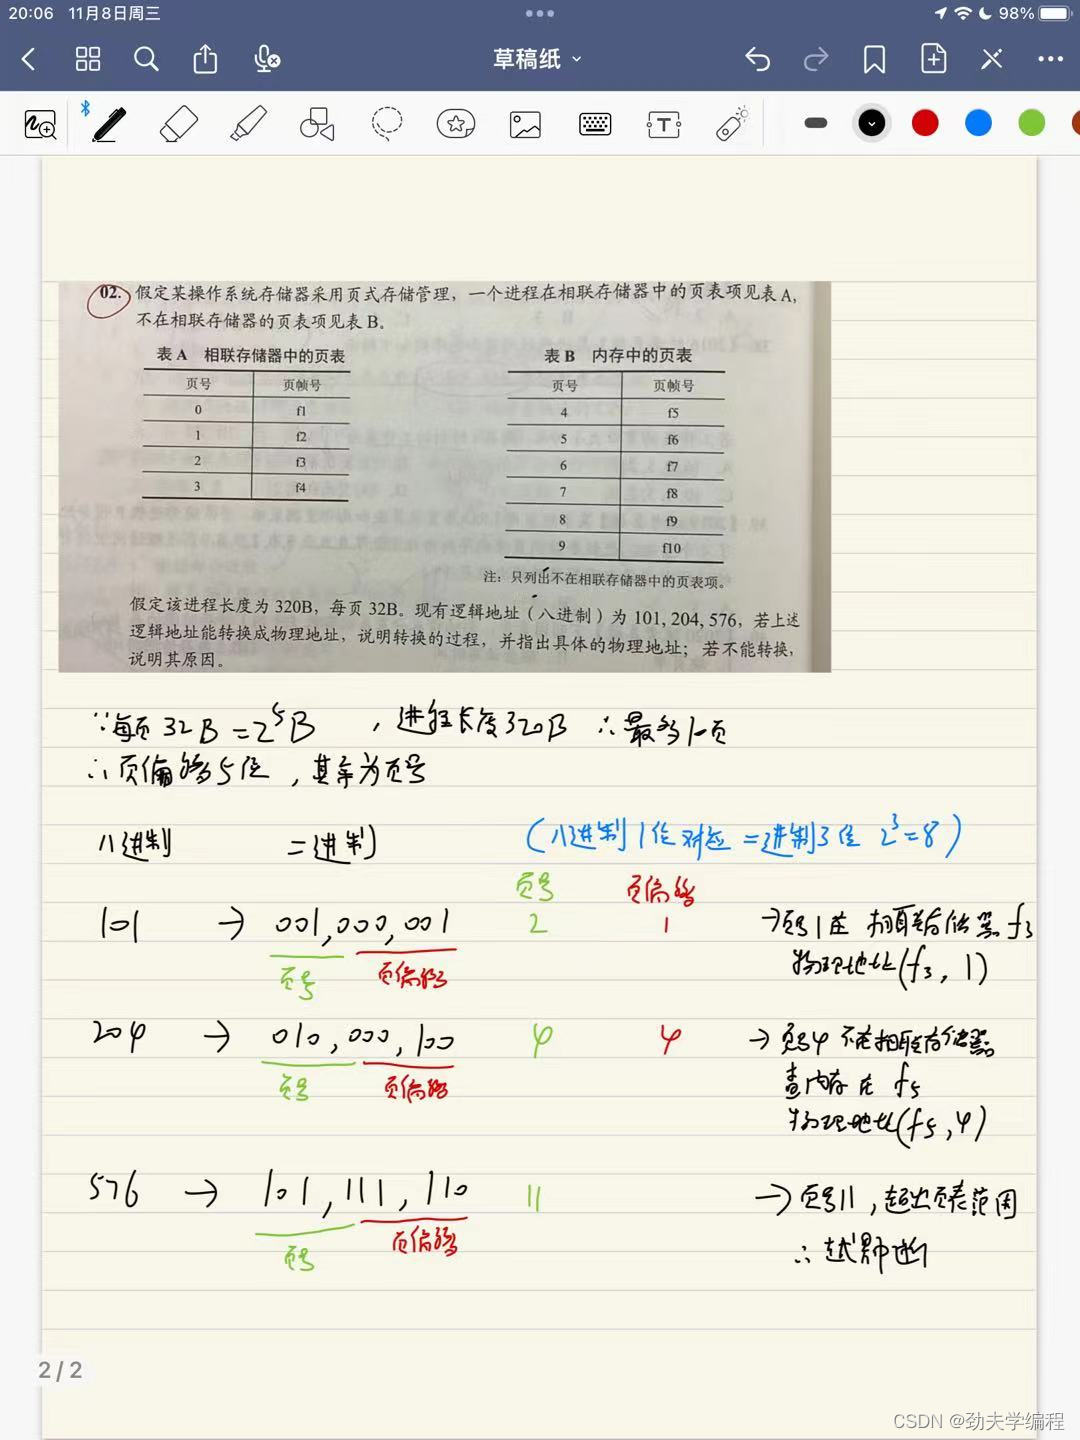 20:06 11月8日周三
98%
草稿纸
02. 假定某操作系统存储器采用页式存储管理，一个进程在相联存储器中的页表项见表 A，
不在相联存储器的页表项见表 B。
表 A 相联存储器中的页表
页号 页帧号
0 f1
1 f2
2 f3
3 f4
表 B 内存中的页表
页号 页帧号
4 f5
5 f6
6 f7
7 f8
8 f9
9 f10
注：只列出不在相联存储器中的页表项。
假定该进程长度为 320B，每页 32B。现有逻辑地址（八进制）为 101, 204, 576，若上述
逻辑地址能转换成物理地址，说明转换的过程，并指出具体的物理地址；若不能转换，
说明其原因。
∵每页 32B = 2^5B ，进程长度320B ∴最多1页
∴页偏移5位，其余为页号
八进制 二进制 （八进制1位对应二进制3位 2^3=8）
页号 页偏移
101 → 001,000,001 2 1 →页号1在相联存储器 f3
页号 页偏移 物理地址(f3, 1)
204 → 010,000,100 4 4 →页号4不在相联存储器
页号 页偏移 查内存在 f5
物理地址(f5,4)
576 → 101,111,110 11 →页号11，超出页表范围
页号 页偏移 ∴越界中断
2 / 2
CSDN @劲夫学编程